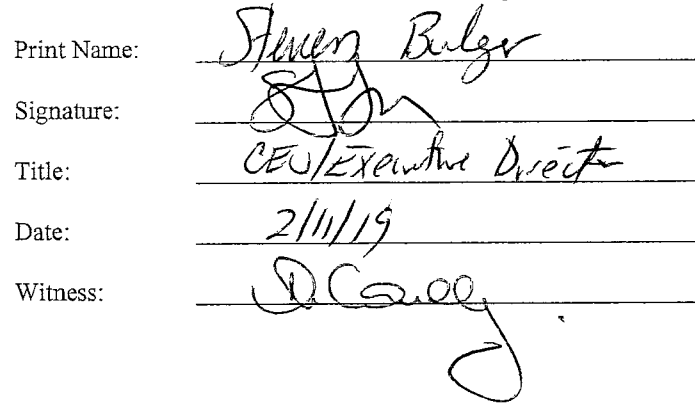 Print Name: Steven Bulger
Signature:
Title: CEO/Executive Director
Date: 2/11/19
Witness: